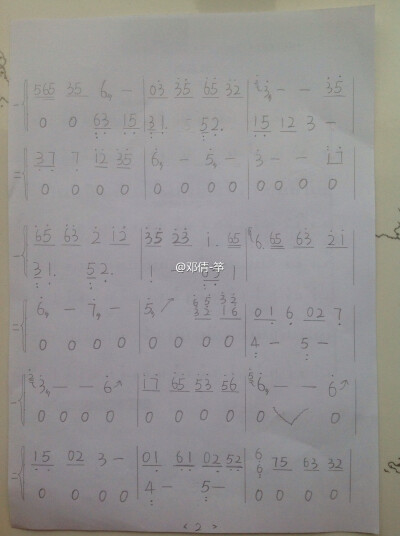 一 565 35 6 - | 03 35 65 32 | 3 - - 35
0 0 63 15 | 31. 52. | 15 12 3 -
二 37 7 12 35 | 6 - 5 - | 3 - - 17
0 0 0 0 | 0 0 0 0 | 0 0 0 0
一 65 63 2 12 | 35 23 1. 65 | 6. 65 63 21
31. 52. | 1 - 63 1
@邓倩-筝
二 6 - 7 - | 5 | 01 6 02 7
0 0 0 0 | 0 0 0 0 | 4 - 5 -
一 3 - - 6 | 17 65 53 56 | 6 - - 6
0 0 0 0 | 0 0 0 0 | 0 0
二 15 02 3 - | 01 61 02 52 | 75 63 32
0 0 0 0 | 4 - 5 - | 0 0 0 0
<2>